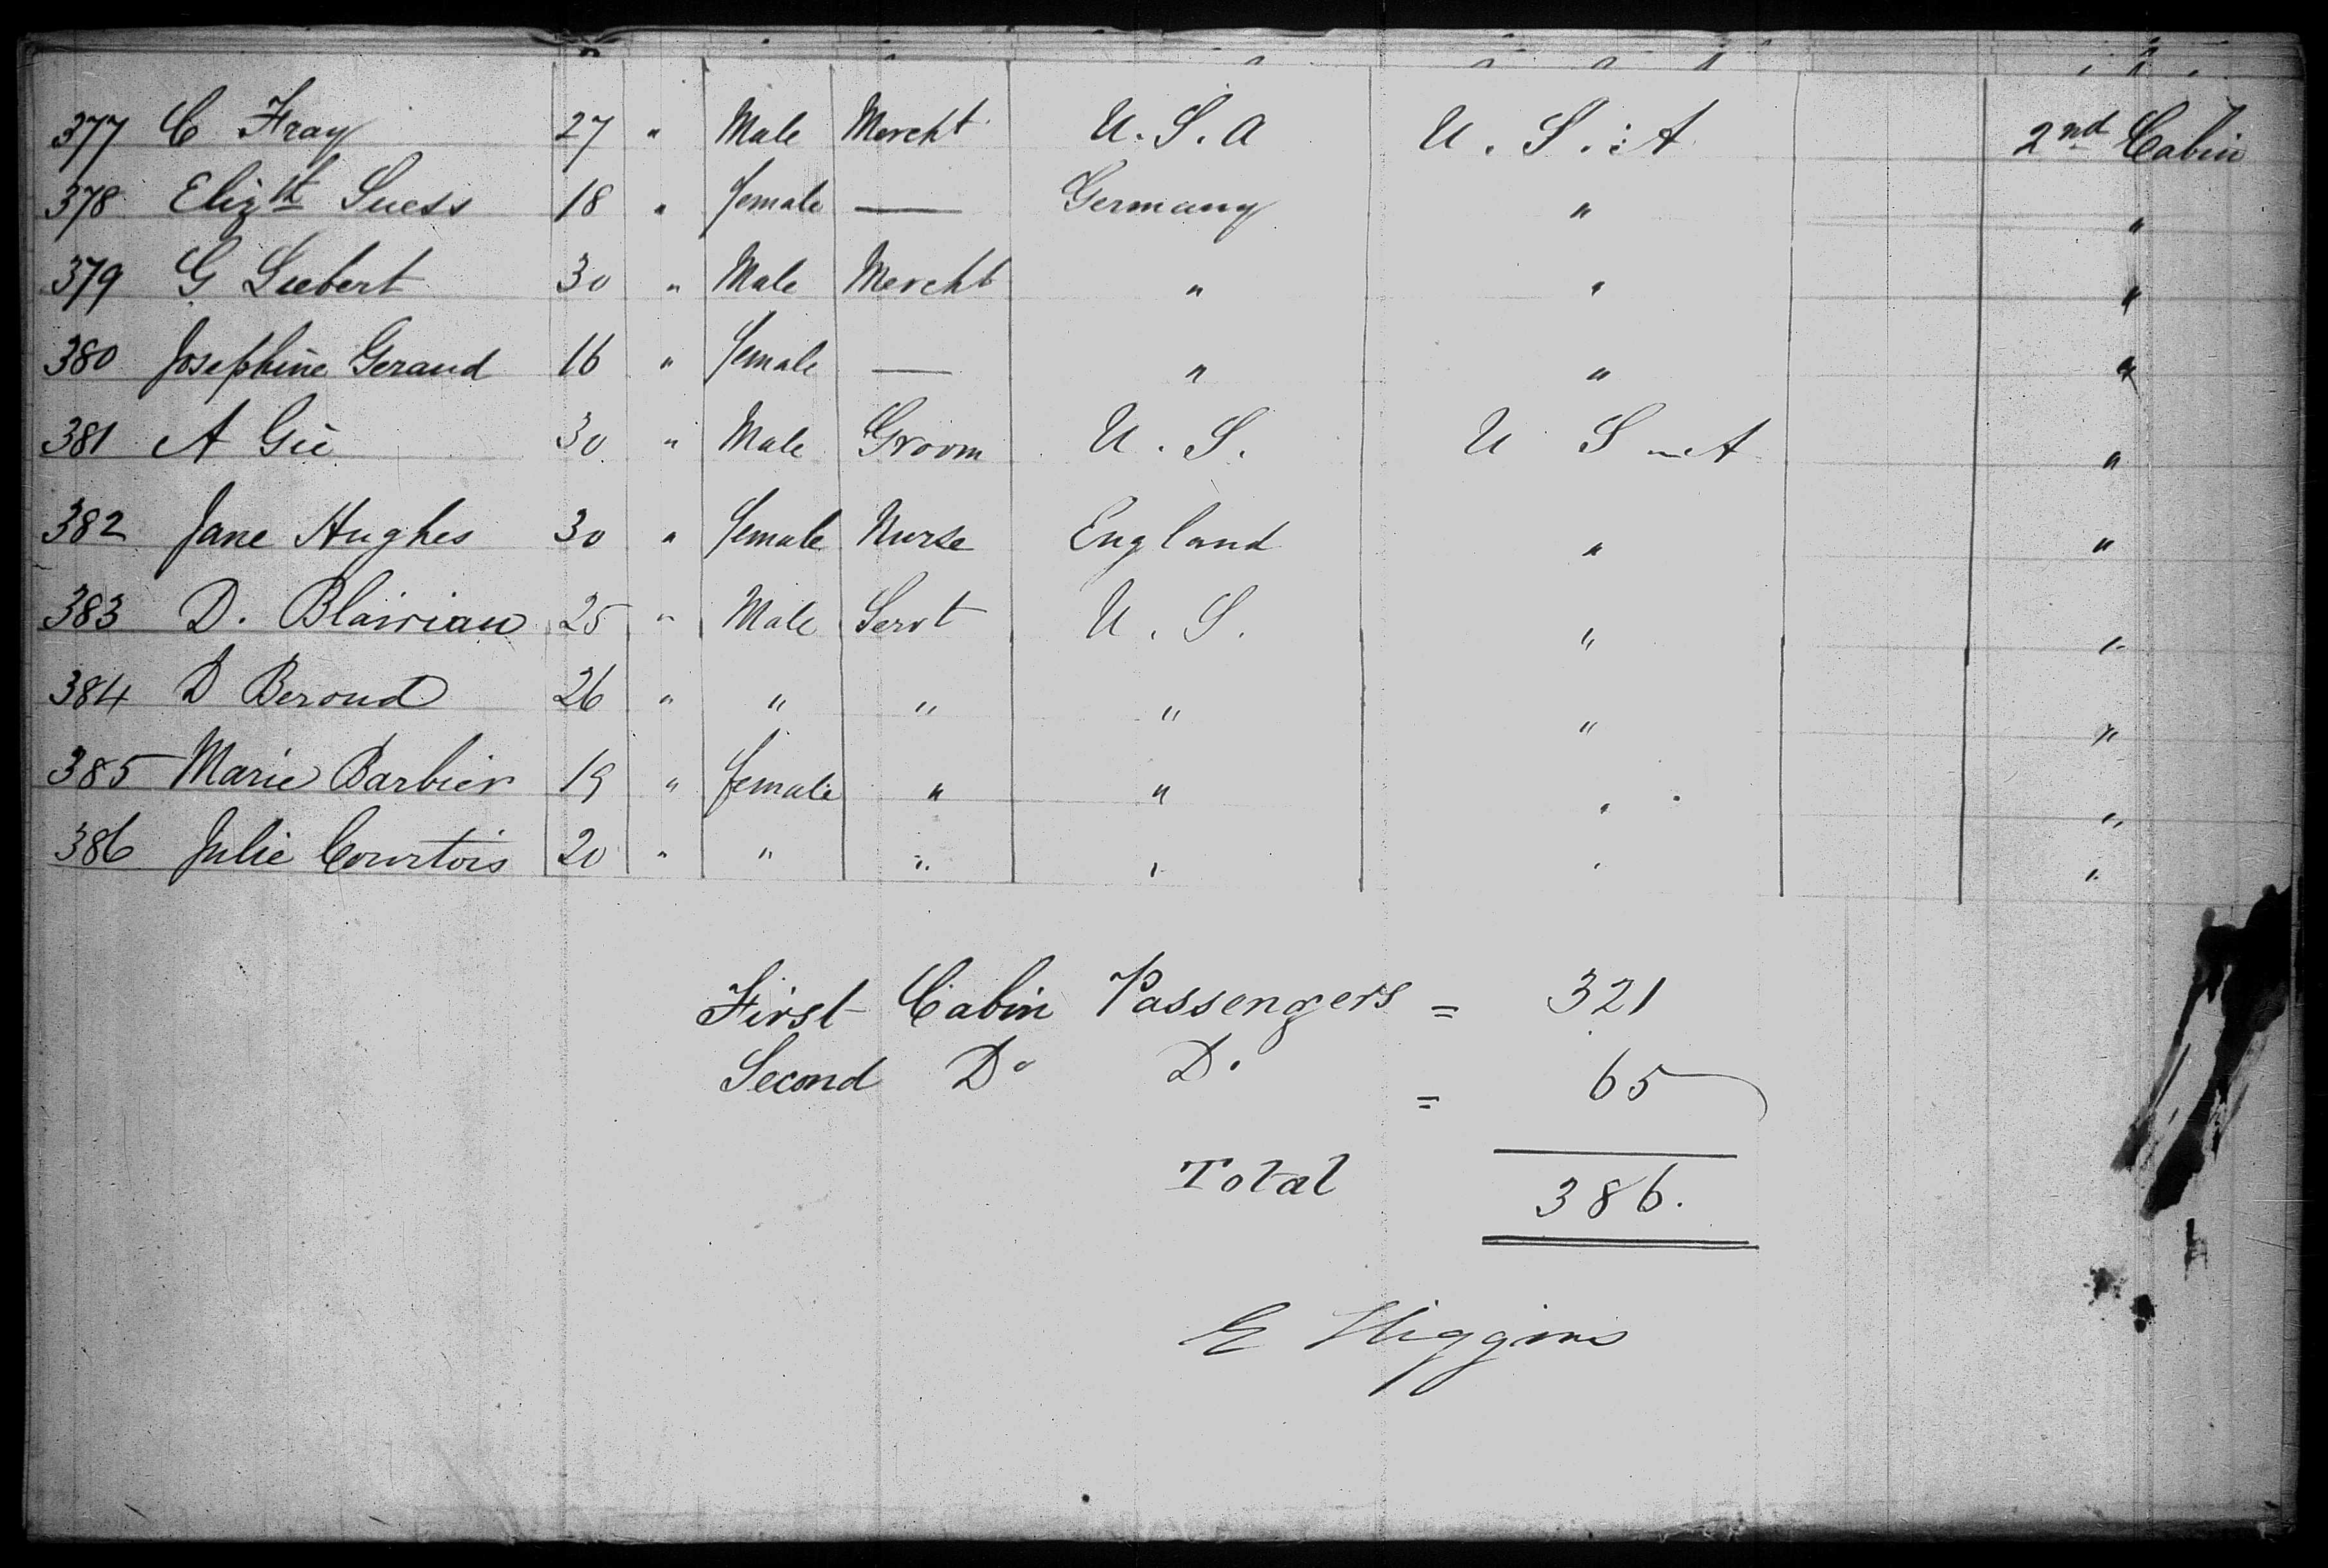 377 C Fray 27 " Male Mercht U. S. A U. S. : A 2nd Cabin
378 Elizth Suess 18 " female — Germany " "
379 G Siebert 30 " Male Mercht " " "
380 Josephine Geraud 16 " female — " " "
381 A Gié 30 " Male Groom U. S. U S A "
382 Jane Hughes 30 " female Nurse England " "
383 D. Blairian 25 " Male Servt U. S. " "
384 D Beroud 26 " " " " " "
385 Marie Barbier 19 " female " " " "
386 Julie Courtois 20 " " " " " "
First Cabin Passengers = 321
Second Do Do = 65
Total 386.
E Higgins